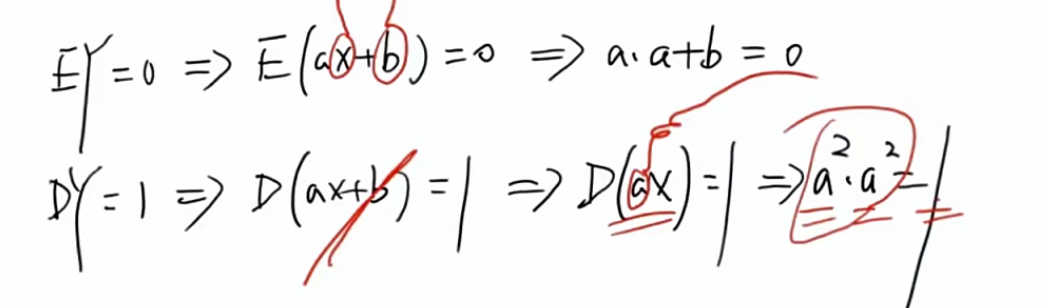 EY=0 => E(ax+b)=0 => a·a+b=0
DY=1 => D(ax+b)=1 => D(ax)=1 => a²·a²=1